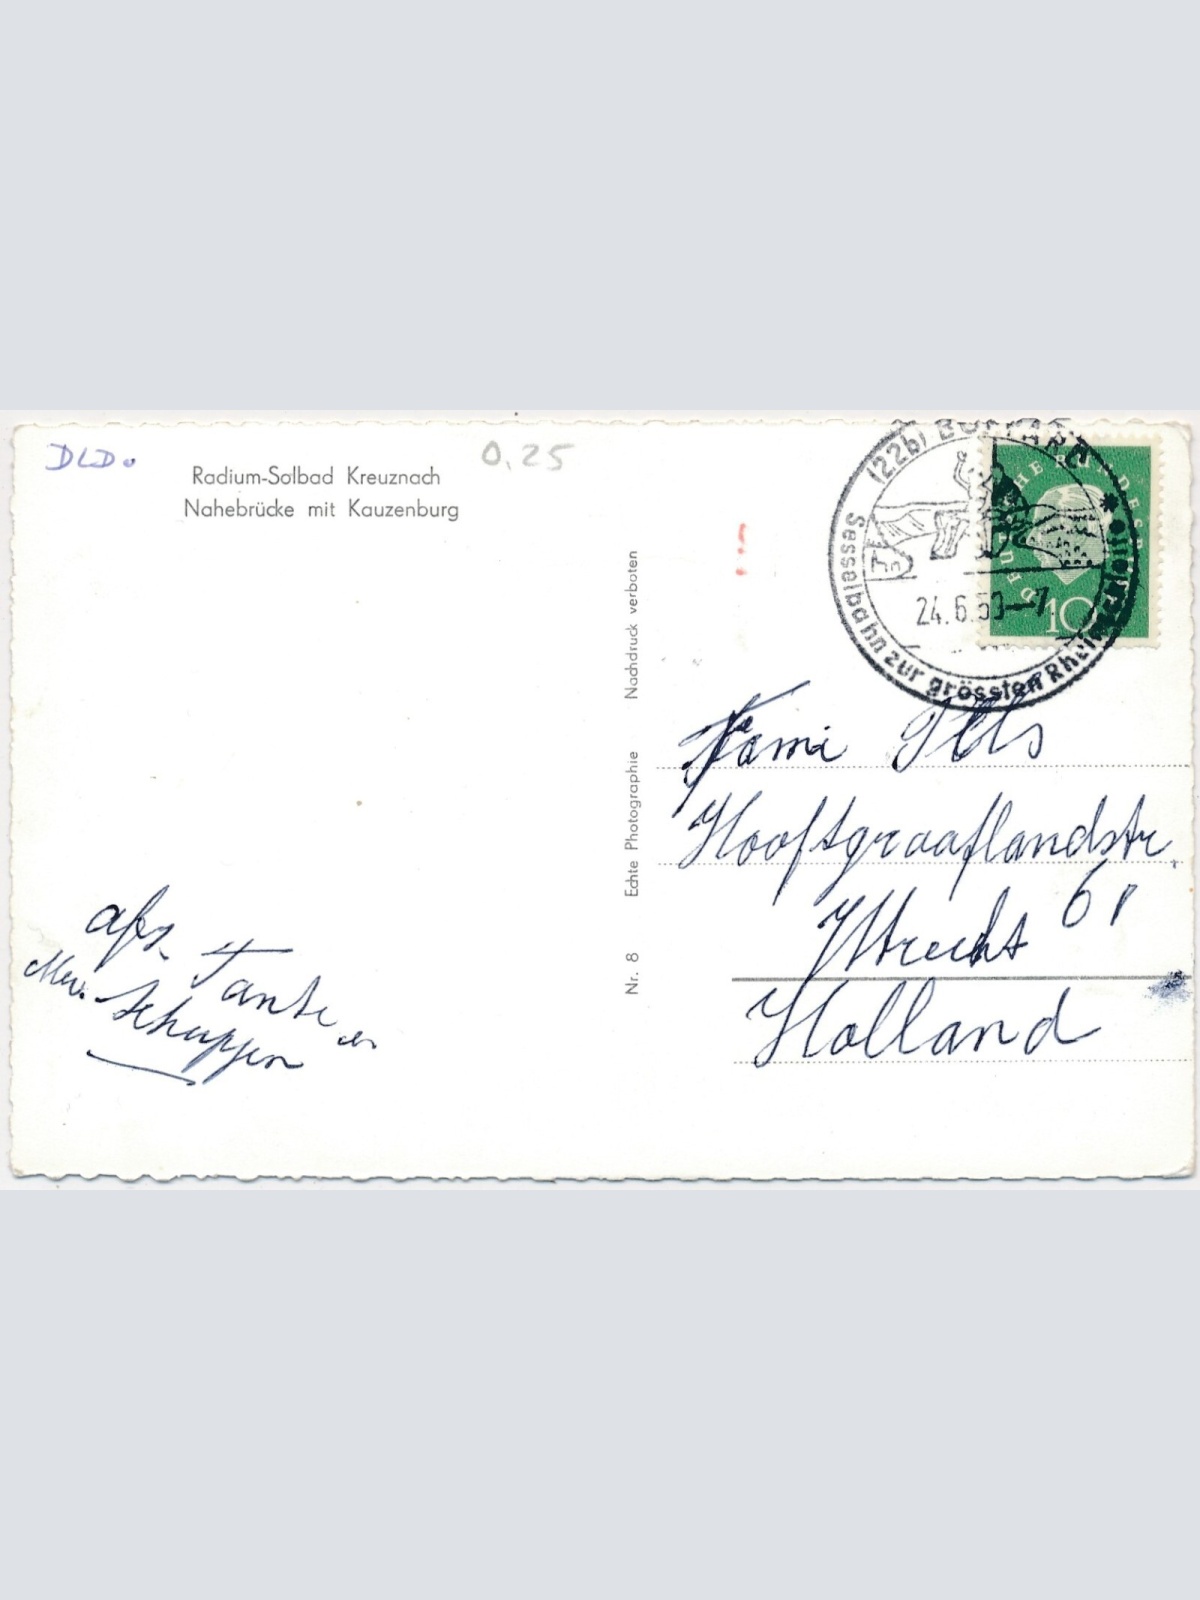 DLD.
0.25
Radium-Solbad Kreuznach
Nahebrücke mit Kauzenburg
Nr. 8 Echte Photographie Nachdruck verboten
(22b) BOPPARD
Sesselbahn zur grössten Rheinschleife *
24.6.59-7
DEUTSCHE BUNDESPOST
10
Fami
Hooftgraaflandstr.
61
Utrecht
Holland
afz. Tante en
Mev. Schuppen